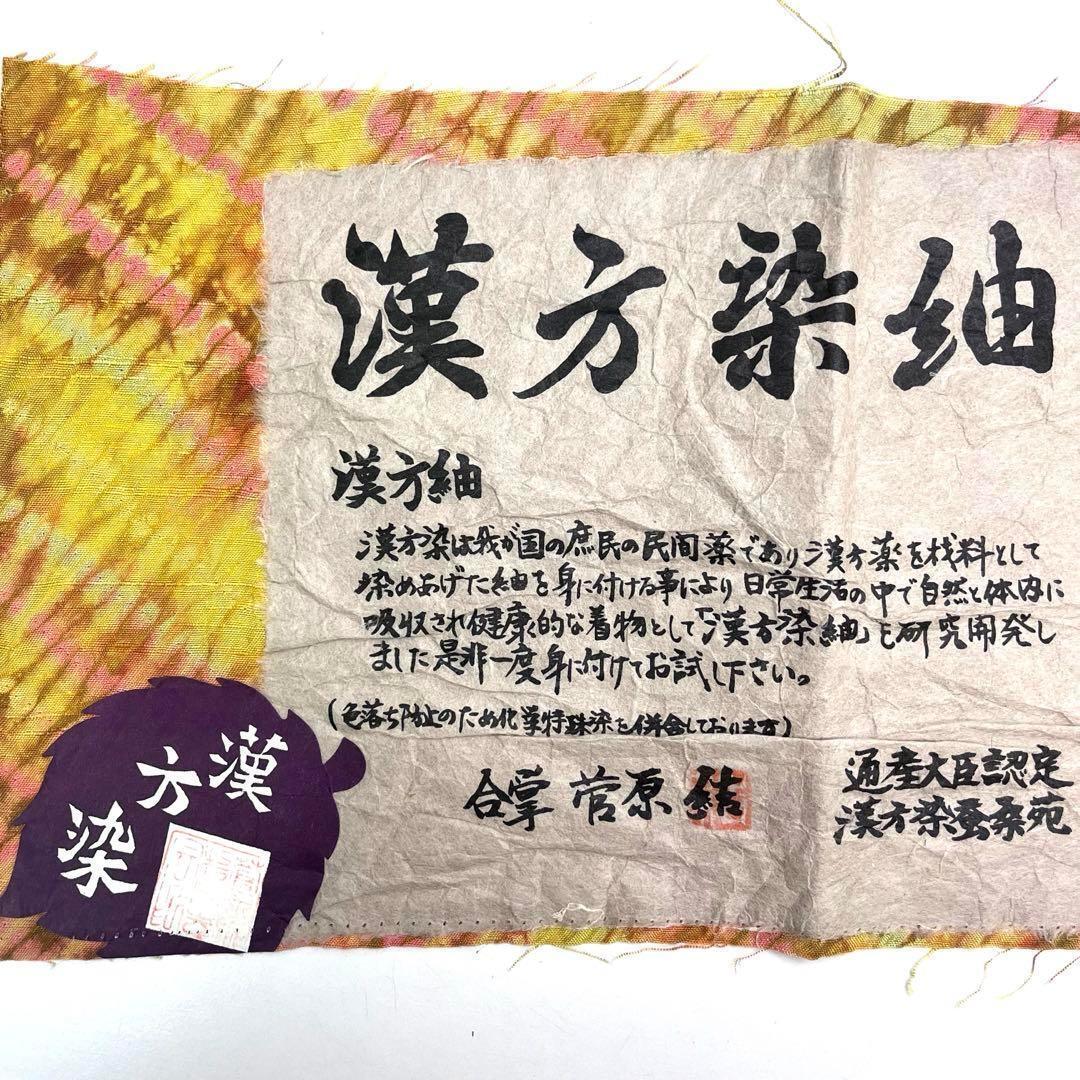 漢方染紬
漢方紬
漢方染は我が国の庶民の民間薬であり漢方薬を材料として
染めあげた紬を身に付ける事により日常生活の中で自然と体内に
吸収され健康的な着物として「漢方染紬」を研究開発し
ました是非一度身に付けてお試し下さい。
(色落ち防止のため化学特殊染を併合しております)
合掌 菅原 結
通産大臣認定
漢方染蚕桑苑
漢方染